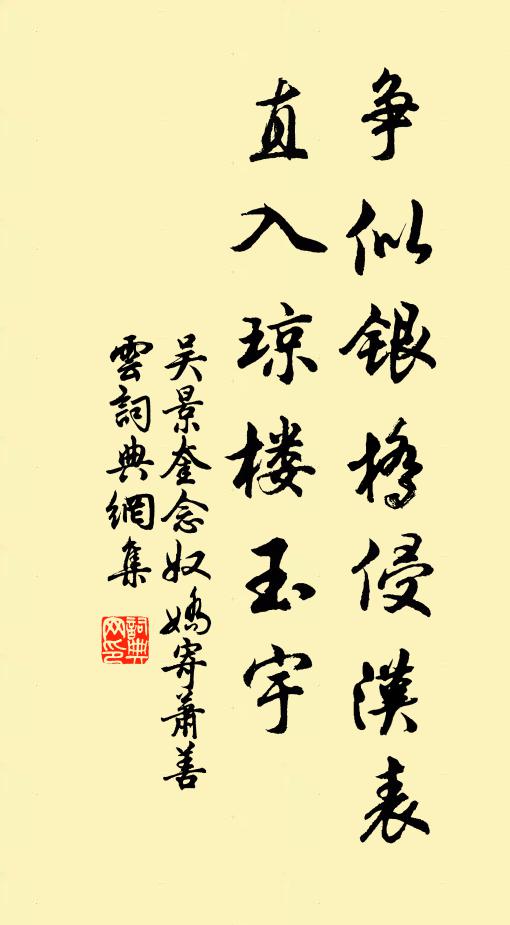 争似银橋侵漢表
直入琼楼玉宇
吴景奎念奴嬌寄蕭善
雲詞典網集
詞典
网印